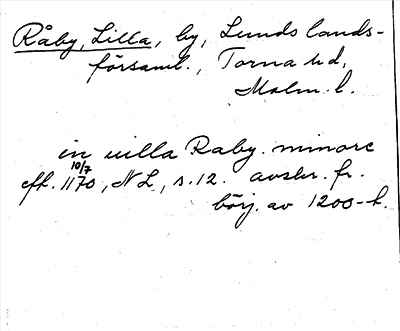 Råby, Lilla, by, Lunds lands-
församl., Torna hd,
Malm. l.
in uilla Raby. minore
10/7
eft. 1170, NL, s. 12. avskr. fr.
börj. av 1200-t.